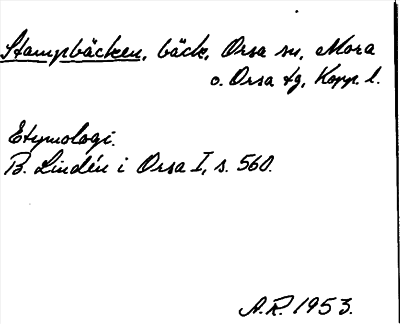 Stampbäcken, bäck, Orsa sn, Mora
o. Orsa tg, Kopp. l.
Etymologi.
B. Lindén i Orsa I, s. 560.
A.R. 1953.